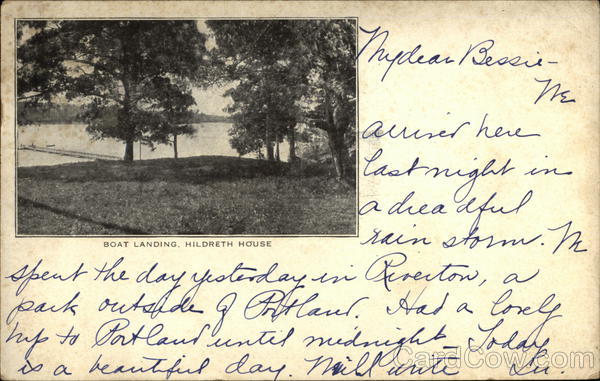 My dear Bessie –
We
arrived here
last night in
a dreadful
rain storm. We
BOAT LANDING, HILDRETH HOUSE
spent the day yesterday in Riverton, a
park outside of Portland. Had a lovely
trip to Portland until midnight. Today
is a beautiful day. Will write
CardCow.com